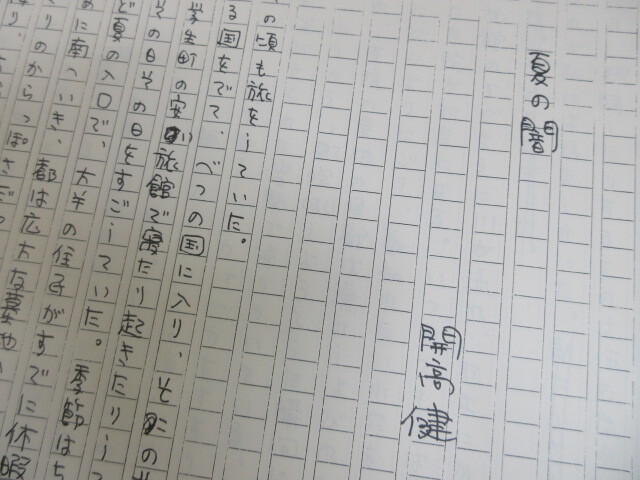 夏の闇
開高健
の頃も旅をしていた。
る国をでて、べつの国に入り、そこの
学生町の安い旅館で寝たり起きたりして
その日その日をすごしていた。季節はち
ど夏の入口で、大半の住民がすでに休暇
めに南へいき、都は広大な墓地か
りのからっぽさだ